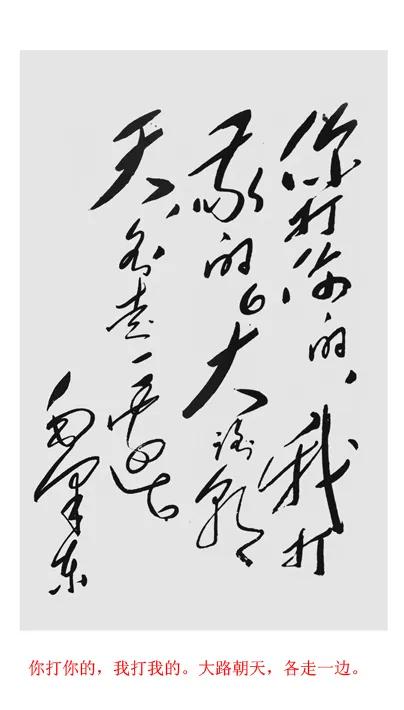 你打你的，我打
我的。大路朝
天，各走一边
毛泽东
你打你的，我打我的。大路朝天，各走一边。